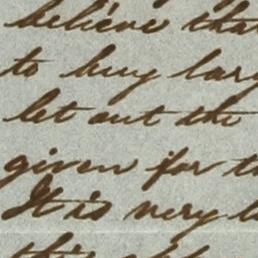 believe that
to buy larg
let out the
given for t
It is very l
this